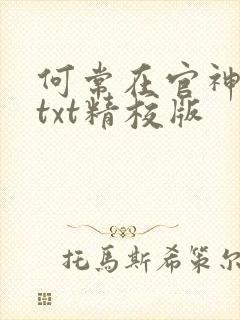 何常在官神
txt精校版
托馬斯希策尔